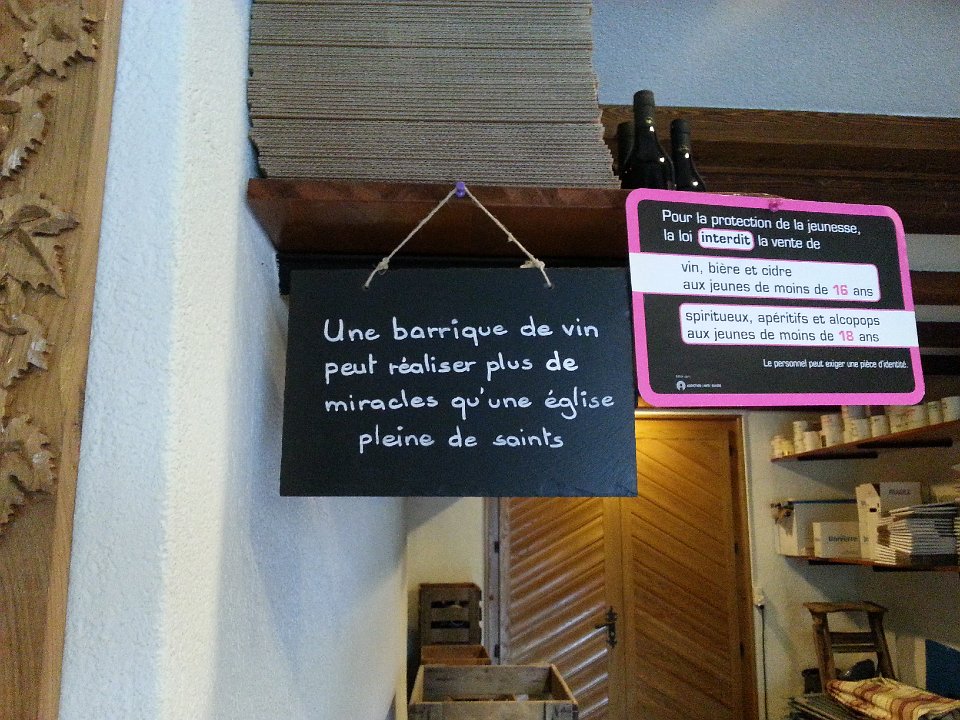 Une barrique de vin
peut réaliser plus de
miracles qu'une église
pleine de saints
Pour la protection de la jeunesse,
la loi interdit la vente de
vin, bière et cidre
aux jeunes de moins de 16 ans
spiritueux, apéritifs et alcopops
aux jeunes de moins de 18 ans
Le personnel peut exiger une pièce d'identité.
FRAGILE